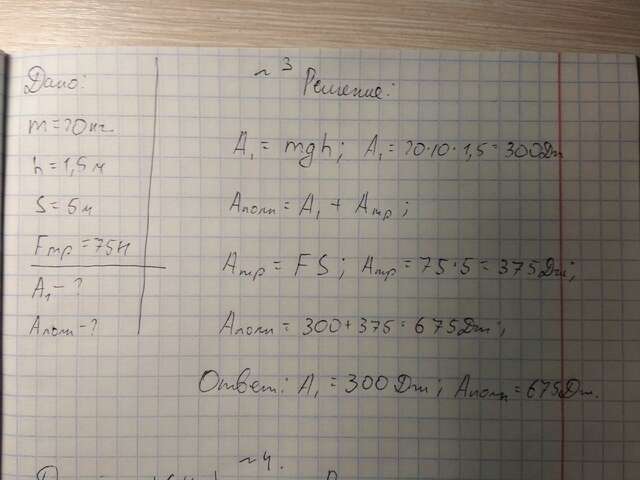 ~ 3
Дано:
Решение:
m = 20 кг
h = 1,5 м
S = 5 м
Fтр = 75 Н
A₁ - ?
Aполн - ?
A₁ = mgh; A₁ = 20·10·1,5 = 300Дж
Aполн = A₁ + Aтр;
Aтр = FS; Aтр = 75·5 = 375Дж;
Aполн = 300+375 = 675Дж;
Ответ: A₁ = 300 Дж; Aполн = 675Дж.
~4.